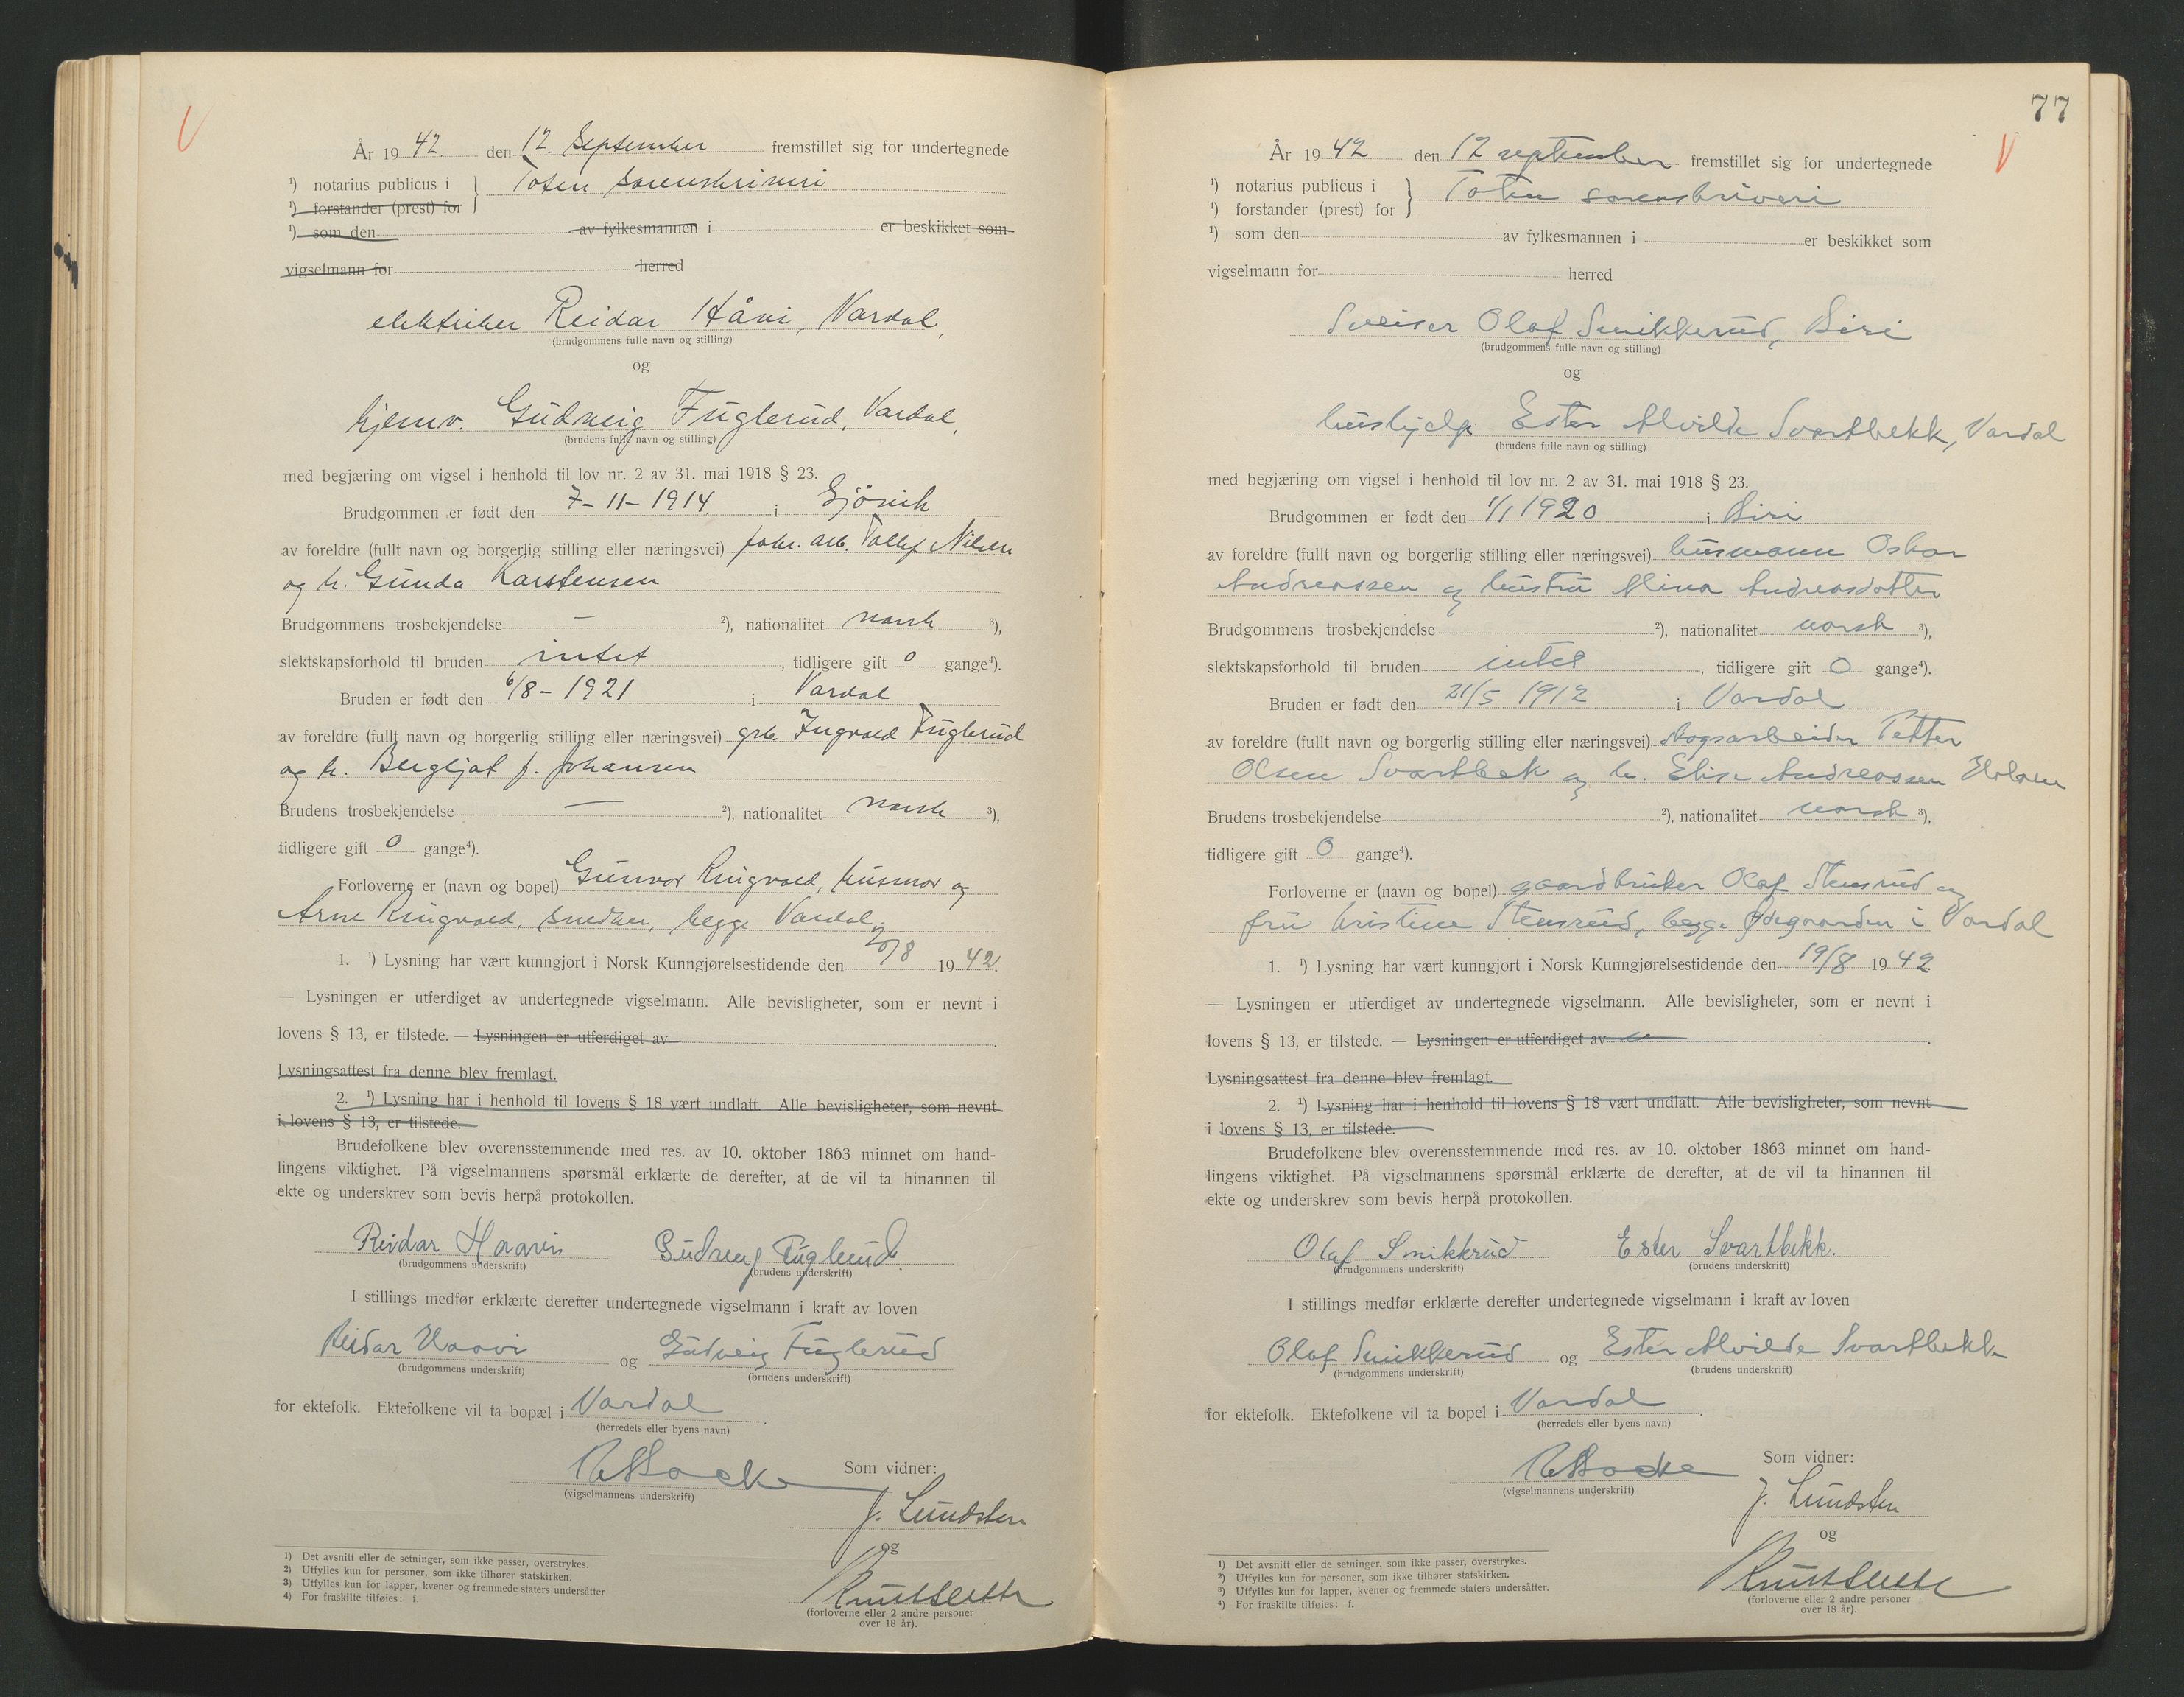 År 19 42. den 12. September fremstillet sig for undertegnede
¹) notarius publicus i Toten sorenskriveri
¹) forstander (prest) for
¹) som den av fylkesmannen i er beskikket som
vigselmann for herred
elektriker Reidar Håvi, Vardal,
(brudgommens fulle navn og stilling)
og
hjemv. Gudveig Fuglerud, Vardal,
(brudens fulle navn og stilling)
med begjæring om vigsel i henhold til lov nr. 2 av 31. mai 1918 § 23.
Brudgommen er født den 7-11-1914. i Gjövik
av foreldre (fullt navn og borgerlig stilling eller næringsvei) fabr. arb. Tollef Nilsen
og h. Gunda Karstensen
Brudgommens trosbekjendelse — ²), nationalitet norsk ³),
slektskapsforhold til bruden intet, tidligere gift 0 gange⁴).
Bruden er født den 6/8-1921 i Vardal
av foreldre (fullt navn og borgerlig stilling eller næringsvei) grb. Ingvald Fuglerud
og h. Bergljot f. Johansen
Brudens trosbekjendelse — ²), nationalitet norsk ³),
tidligere gift 0 gange⁴).
Forloverne er (navn og bopel) Gunvor Ringvold, husmor og
Arne Ringvold, snedker, begge Vardal.
1. ¹) Lysning har vært kunngjort i Norsk Kunngjørelsestidende den 20/8 19 42.
— Lysningen er utferdiget av undertegnede vigselmann. Alle bevisligheter, som er nevnt i
lovens § 13, er tilstede. — Lysningen er utferdiget av .
Lysningsattest fra denne blev fremlagt.
2. ¹) Lysning har i henhold til lovens § 18 vært undlatt. Alle bevisligheter, som nevnt
i lovens § 13, er tilstede.
Brudefolkene blev overensstemmende med res. av 10. oktober 1863 minnet om hand-
lingens viktighet. På vigselmannens spørsmål erklærte de derefter, at de vil ta hinannen til
ekte og underskrev som bevis herpå protokollen.
Reidar Haavi Gudveig Fuglerud.
(brudgommens underskrift) (brudens underskrift)
I stillings medfør erklærte derefter undertegnede vigselmann i kraft av loven
Reidar Haavi og Gudveig Fuglerud
(brudgommens underskrift) (brudens underskrift)
for ektefolk. Ektefolkene vil ta bopæl i Vardal.
(herredets eller byens navn)
Som vidner:
(vigselmannens underskrift)
J. Lundsten
og
(forloverne eller 2 andre personer
over 18 år).
1) Det avsnitt eller de setninger, som ikke passer, overstrykes.
2) Utfylles kun for personer, som ikke tilhører statskirken.
3) Utfylles kun for lapper, kvener og fremmede staters undersåtter
4) For fraskilte tilføies: f.
77
År 19 42 den 12 september fremstillet sig for undertegnede
¹) notarius publicus i Toten sorenskriveri
¹) forstander (prest) for
¹) som den av fylkesmannen i er beskikket som
vigselmann for herred
Sveiser Olaf Smikkerud, Biri
(brudgommens fulle navn og stilling)
og
hushjelp Ester Alvilde Svartbekk, Vardal
(brudens fulle navn og stilling)
med begjæring om vigsel i henhold til lov nr. 2 av 31. mai 1918 § 23.
Brudgommen er født den 1/1 1920 i Biri
av foreldre (fullt navn og borgerlig stilling eller næringsvei) husmann Oskar
Andreassen og hustru Mina Andreasdatter
Brudgommens trosbekjendelse ²), nationalitet norsk ³),
slektskapsforhold til bruden intet, tidligere gift 0 gange⁴).
Bruden er født den 21/5 1912 i Vardal
av foreldre (fullt navn og borgerlig stilling eller næringsvei) skogsarbeider Petter
Olsen Svartbek og h. Elise Andreassen
Brudens trosbekjendelse ²), nationalitet norsk ³),
tidligere gift 0 gange⁴).
Forloverne er (navn og bopel) gaardbruker Olaf Stensrud og
fru Kristine Stensrud, begge Ødegaarden i Vardal
1. ¹) Lysning har vært kunngjort i Norsk Kunngjørelsestidende den 19/8 19 42.
— Lysningen er utferdiget av undertegnede vigselmann. Alle bevisligheter, som er nevnt i
lovens § 13, er tilstede. — Lysningen er utferdiget av .
Lysningsattest fra denne blev fremlagt.
2. ¹) Lysning har i henhold til lovens § 18 vært undlatt. Alle bevisligheter, som nevnt
i lovens § 13, er tilstede.
Brudefolkene blev overensstemmende med res. av 10. oktober 1863 minnet om hand-
lingens viktighet. På vigselmannens spørsmål erklærte de derefter, at de vil ta hinannen til
ekte og underskrev som bevis herpå protokollen.
Olaf Smikkrud Ester Svartbekk.
(brudgommens underskrift) (brudens underskrift)
I stillings medfør erklærte derefter undertegnede vigselmann i kraft av loven
Olaf Smikkerud og Ester Alvilde Svartbekk
(brudgommens underskrift) (brudens underskrift)
for ektefolk. Ektefolkene vil ta bopel i Vardal.
(herredets eller byens navn)
Som vidner:
(vigselmannens underskrift)
J. Lundsten
og
(forloverne eller 2 andre personer
over 18 år).
¹) Det avsnitt eller de setninger, som ikke passer, overstrykes.
²) Utfylles kun for personer, som ikke tilhører statskirken.
³) Utfylles kun for lapper, kvener og fremmede staters undersåtter.
⁴) For fraskilte tilføies: f.